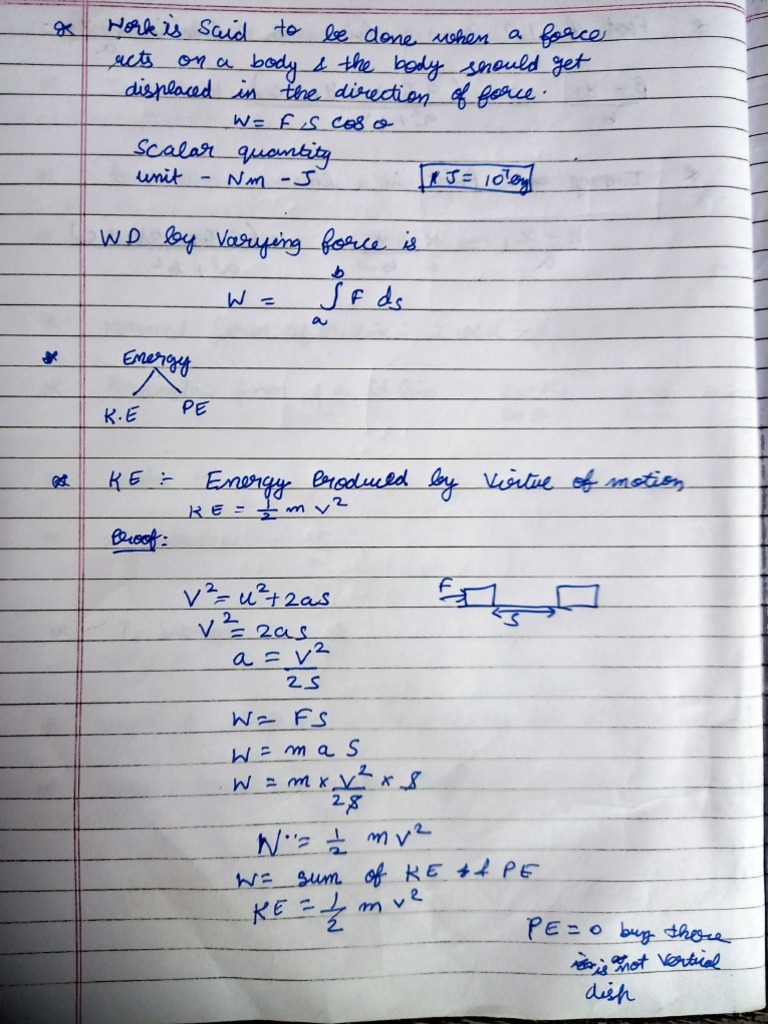 * Work is said to be done when a force
acts on a body & the body should get
displaced in the direction of force.
W = F.S cos θ
Scalar quantity
unit - Nm - J
1 J = 10⁷erg
WD by varying force is
W = ∫ₐᵇ F ds
* Energy
K.E PE
* KE :- Energy Produced by Virtue of motion
KE = 1/2 m v²
Proof:
V² = u² + 2as
F S
V² = 2as
a = V²/2s
W = FS
W = m a S
W = m x V²/2s x s
W = 1/2 mv²
W = sum of KE & PE
KE = 1/2 m v²
PE = 0 bcz there
is not vertical
disp